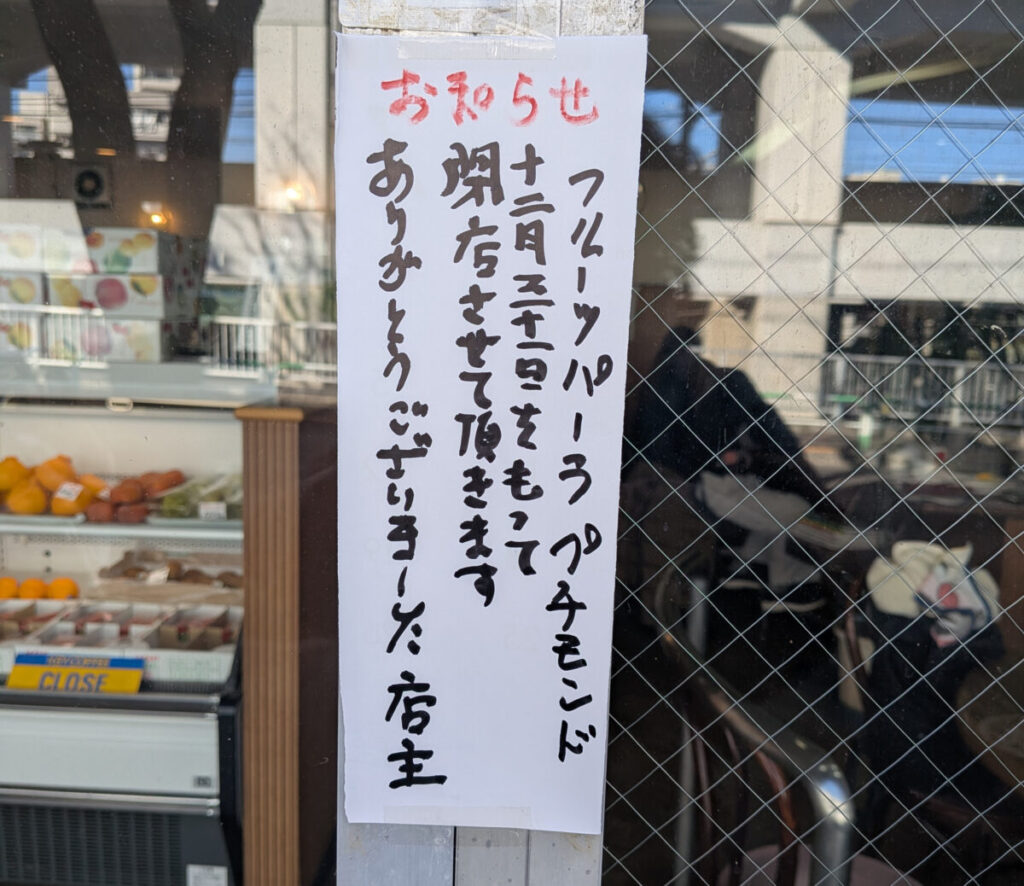 お知らせ
フルーツパーラプチモンド
十二月三十一日をもって
閉店させて頂きます
ありがとうございました 店主
CLOSE